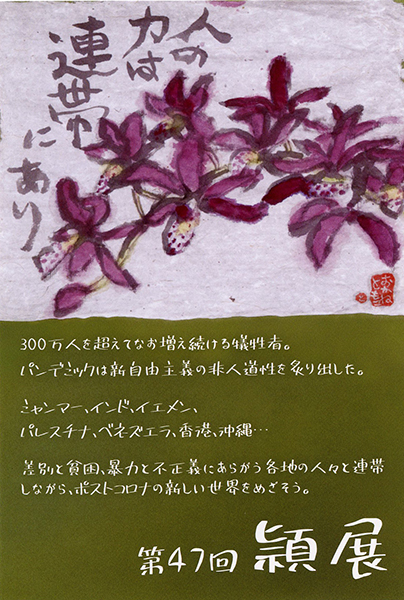 人の
力は
連帯
にあり
300万人を超えてなお増え続ける犠牲者。
パンデミックは新自由主義の非人道性を炙り出した。
ミャンマー、インド、イエメン、
パレスチナ、ベネズエラ、香港、沖縄…
差別と貧困、暴力と不正義にあらがう各地の人々と連帯
しながら、ポストコロナの新しい世界をめざそう。
第47回 頴展